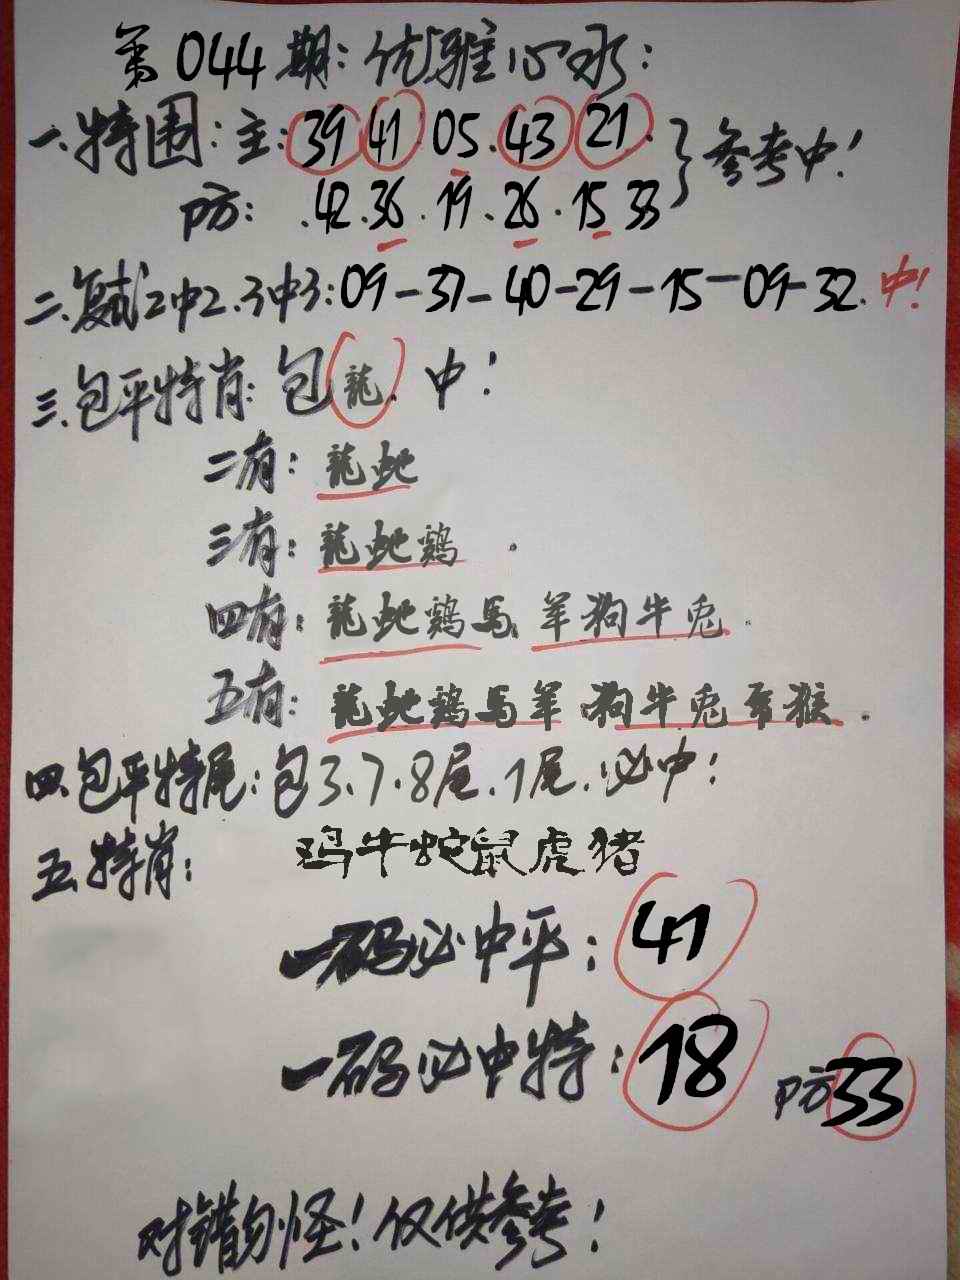 第044期：优雅心水：
一.特围：主：39 41 05 43 21. }参考中！
防：.42.36.19.26.15 33
二.复式2中2.3中3：09-37-40-29-15-09-32.中！
三.包平特肖：包龍.中！
二有：龍蛇
三有：龍蛇鷄.
四有：龍蛇鷄馬羊狗牛兎.
五有：龍蛇鷄馬羊狗牛兎帝猴.
四.包平特尾：包3.7.8尾.1尾.必中！
五.特肖：鸡牛蛇鼠虎猪
一码必中平：41
一码必中特：18 防33
对错勿怪！仅供参考！